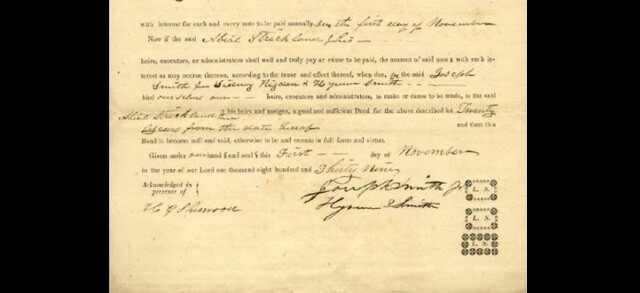 with interest for each and every note to be paid annually, on the first day of November
Now if the said Abiel Strickland & his
heirs, executors, or administrators shall well and truly pay or cause to be paid, the amount of said note s with each inter-
est as may accrue thereon, according to the tenor and effect thereof, when due, the said Joseph
Smith Jun Sidney Rigdon & Hyrum Smith
bind ourselves our heirs, executors and administrators, to make or cause to be made, to the said
Abiel Strickland & his heirs and assigns, a good and sufficient Deed for the above described lot Twenty
from the date hereof and then this
Bond to become null and void, otherwise to be and remain in full force and virtue.
Given under our hand s and seal s this First day of November
in the year of our Lord one thousand eight hundred and Thirty Nine
Acknowledged in
presence of
H G Sherwood
Joseph Smith Jr
Hyrum Smith
L. S.
L. S.
L. S.